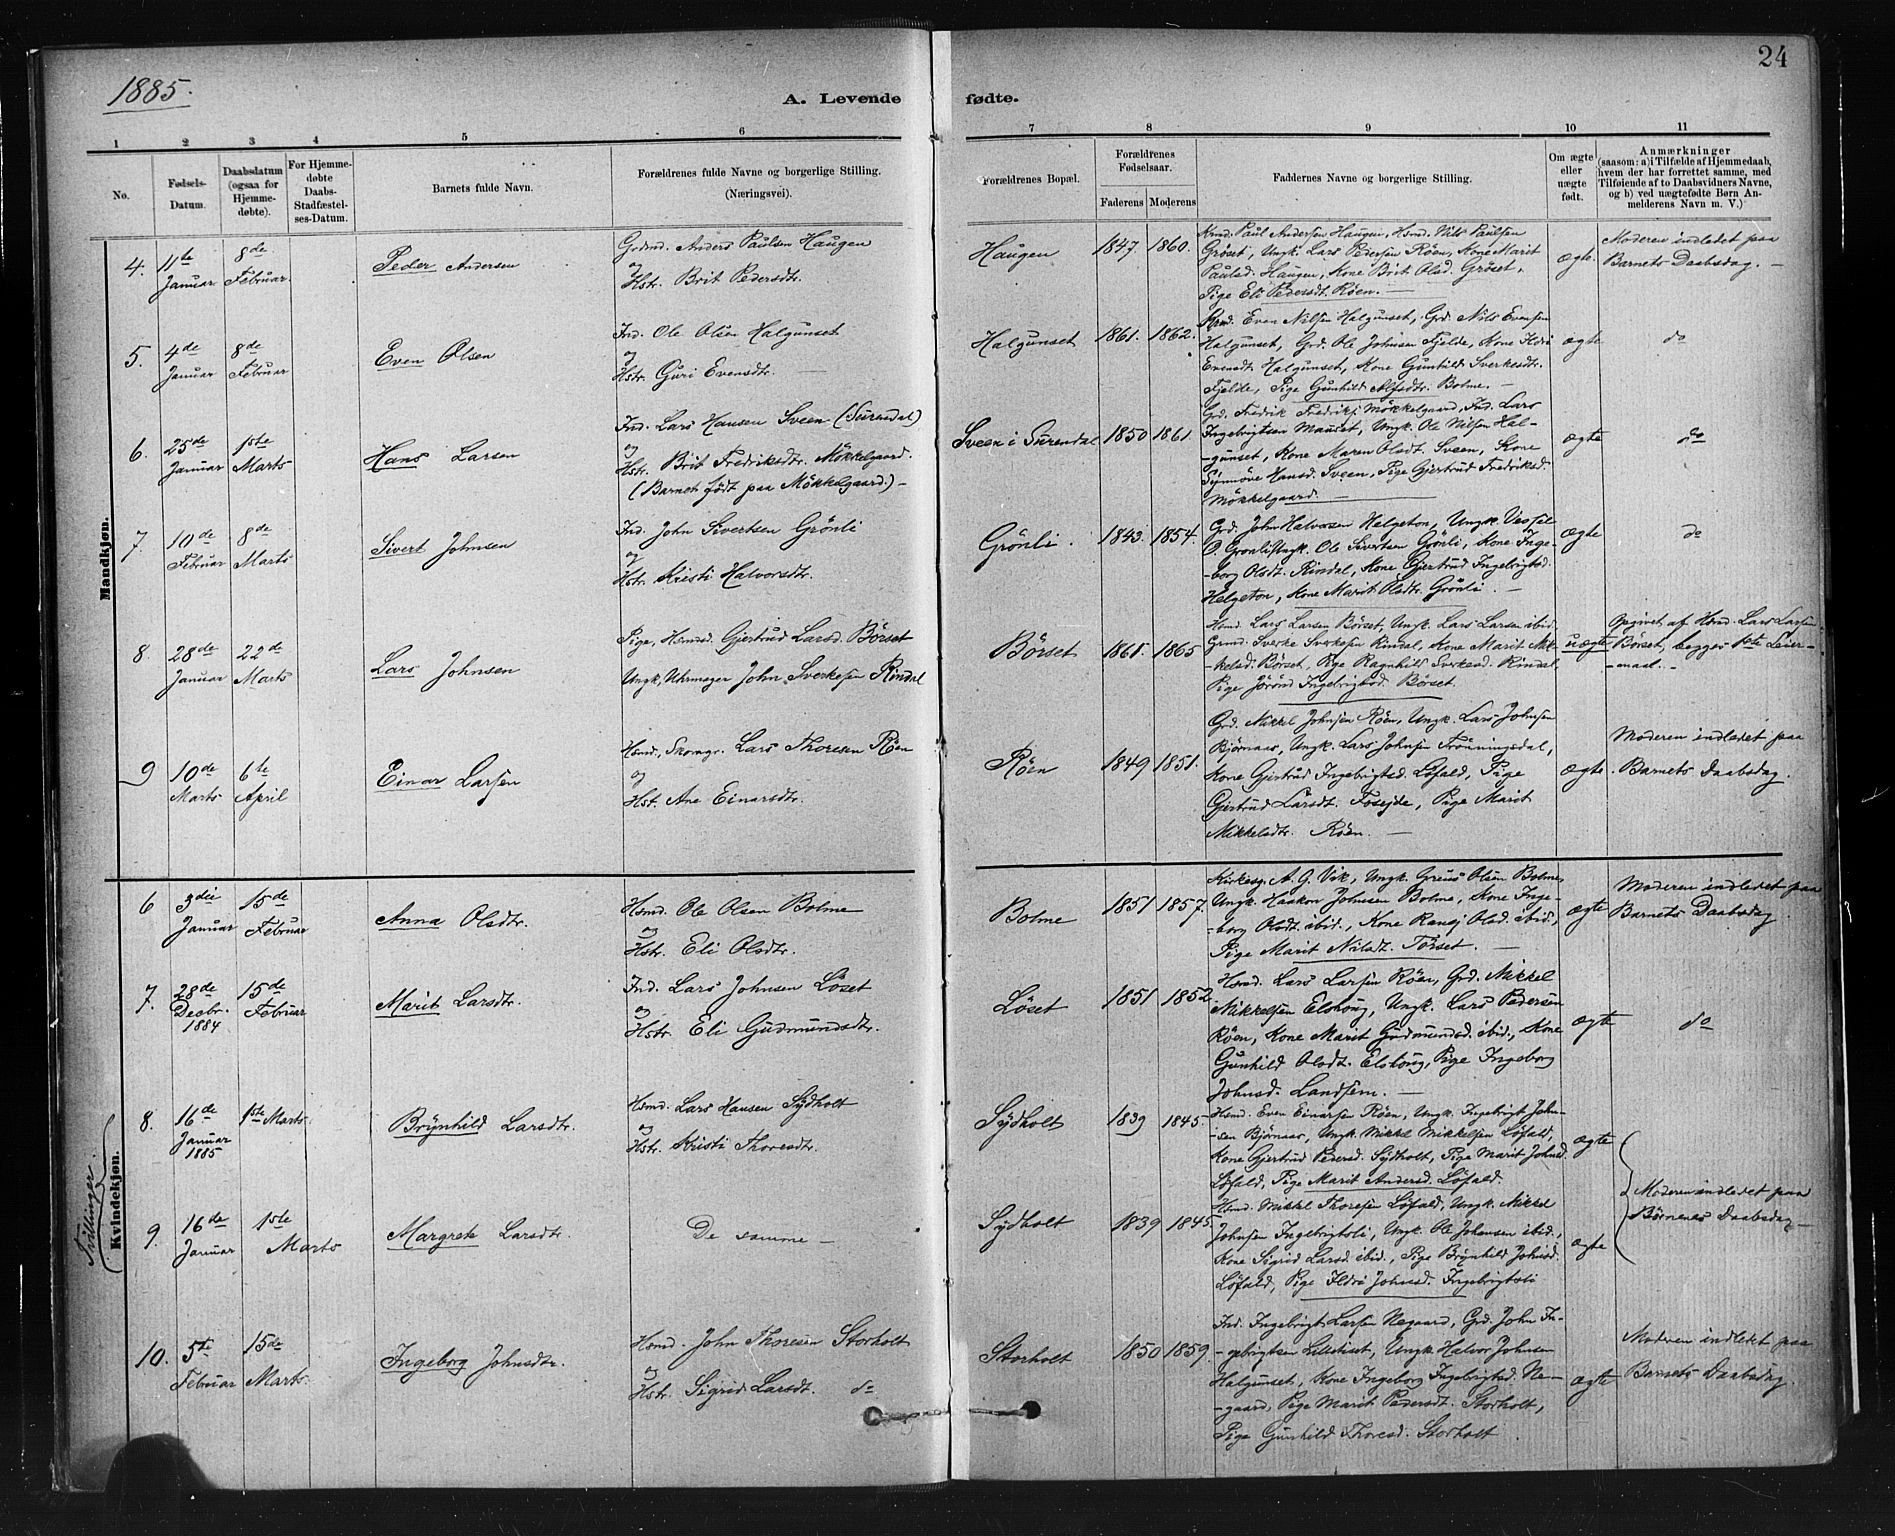 1885.
24
A. Levende fødte.
1 2 3 4 5 6 7 8 9 10 11
No.
Fødsels-Datum.
Daabsdatum (ogsaa for Hjemmedøbte).
For Hjemmedøbte Daabs-Stadfæstelses-Datum.
Barnets fulde Navn.
Forældrenes fulde Navne og borgerlige Stilling.
(Næringsvei).
Forældrenes Bopæl.
Forældrenes Fødselsaar.
Faderens Moderens
Faddernes Navne og borgerlige Stilling.
Om ægte eller uægte født.
Anmærkninger
(saasom: a) i Tilfælde af Hjemmedaab,
hvem der har forrettet samme, med
Tilføiende af to Daabsvidners Navne,
og b) ved uægtefødte Børn An-
melderens Navn m. V.)
Mandkjøn.
4. 11te Januar 8de Februar Peder Andersen
Grdmd. Anders Paulsen Haugen
og
Hstr. Brit Pedersdtr.
Haugen 1847. 1860.
Kmd. Paul Andersen Haugen, Hsmd. Nils Paulsen
Gröset, Ungk. Lars Pedersen Röen, Kone Marit
Paulsd. Haugen, Kone Brit Olsd. Gröset,
Pige Eli Pedersdt. Röen. —
ægte.
Moderen indledet paa
Barnets Daabsdag. —
5. 4de Januar 8de Februar Even Olsen
Ind. Ole Olsen Halgunset
og
Hstr. Guri Evensdtr. —
Halgunset 1861. 1862.
Kmd. Even Nilsen Halgunset, Grd. Nils Evensen
Halgunset, Grd. Ole Johnsen Fjelde, Kone Ildri
Evensdt. Halgunset, Kone Gunhild Sverkesdtr.
Fjelde, Pige Gunhild Alfsdtr. Bolme. —
ægte do
6. 25de Januar 1ste Marts Hans Larsen
Ind. Lars Hansen Sveen (Surendal)
og
Hstr. Brit Fredriksdtr. Mökkelgaard.
(Barnet födt paa Mökkelgaard.) —
Sveen i Surendal 1850 1861.
Grd. Fredrik Fredriks. Mökkelgaard, Ind. Lars
Ingebrigtsen Mauset, Ungk. Ole Nilsen Hal-
-gunset, Kone Maren Olsdt. Sveen, Kone
Synnöve Hansd. Sveen, Pige Gjertrud Fredriksd.
Mökkelgaard. —
ægte do
7. 10de Februar 8de Marts Sivert Johnsen
Ind. John Sivertsen Grönli
og
Hstr. Kristi Halvorsdtr.
Grönli. 1843. 1854.
Grd. John Halvorsen Helgeton, Ungk.
O. Grönli, Ungk. Ole Sivertsen Grönli, Kone Inge-
-borg Olsdt. Rindal, Kone Gjertrud Ingebrigtsd.
Helgeton, Kone Marit Olsdtr. Grönli. —
ægte do
8. 28de Januar 22de Marts Lars Johnsen
Pige, Hsmds. Gjertrud Larsd. Börset
Ungk. Uhrmager John Sverkesen Rindal
Börset 1861. 1865
Hsmd. Lars Larsen Börset, Ungk. Lars Larsen ibid.
Grmd. Sverke Sverkesen Rindal, Kone Marit Mik-
-kelsd. Börset, Pige Ragnhild Sverkesd. Rindal,
Pige Jörönd Ingebrigtsd. Börset.
uægte
Opgivet af Hsmd. Lars Larsen
Börset, begges 1ste Leier-
-maal. —
9 10de Marts 6te April Einar Larsen
Hsmd., Skomgr. Lars Thoresen Röen
og
Hst. Ane Einarsdtr.
Röen 1849 1851.
Grd. Mikkel Johnsen Röen, Ungk. Lars Johnsen
Bjørnaas, Ungk. Lars Johnsen Trönningsdal,
Kone Gjertrud Ingebrigtsd. Löfald, Pige
Gjertrud Larsdt. Fosejde, Pige Marit
Mikkelsdtr. Röen. —
ægte.
Moderen indledet paa
Barnets Daabsdag.
Kvindekjøn.
6 3die Januar 15de Februar Anna Olsdtr.
Hsmd. Ole Olsen Bolme
og
Hstr. Eli Olsdtr.
Bolme 1851 1857.
Kirkesg. A. G. Vik, Ungk. Greus Olsen Bolme,
Ungk. Haakon Johnsen Bolme, Kone Inge-
-borg Olsdt. ibid., Kone Ranej Olsd. ibid.,
Pige Marit Nilsdt. Törset. —
ægte
Moderen indledet paa
Barnets Daabsdag.
7. 28de Decbr. 1884 15de Februar Marit Larsdtr.
Ind. Lars Johnsen Löset
og
Hstr. Eli Gudmundsdtr.
Löset 1851 1852
Hsmd. Lars Larsen Röen, Grd. Mikkel
Mikkelsen Elshoug, Ungk. Lars Pedersen
Röen, Kone Marit Gudmundsd. ibid., Kone
Gunhild Olsdt. Elshoug, Pige Ingeborg
Johnsd. Landsem. —
ægte do
Tvillinger.
8. 16de Januar 1885 1ste Marts Brynhild Larsdtr.
Hsmd. Lars Hansen Sydholt
og
Hstr. Kristi Thoresdtr.
Sydholt 1839 1845.
Hsmd. Even Einarsen Röen, Ungk. Ingebrigt John-
-sen Bjørnaas, Ungk. Mikkel Mikkelsen Löfald,
Kone Gjertrud Pedersd. Sydholt, Pige Marit Johnsd.
Löfald, Pige Marit Andersd. Löfald.
ægte
9. 16de Januar 1ste Marts Margrete Larsdtr.
De samme —
Sydholt 1839 1845.
Hsmd. Mikkel Thoresen Löfald, Ungk. Mikkel
Johnsen Ingebrigtsli, Ungk. Ole Johansen ibid.,
Kone Sigrid Larsd. ibid., Pige Brynhild Johnsd.
Löfald, Pige Ildri Johnsd. Ingebrigtsli
ægte
Moderen indledet paa
Börnenes Daabsdag —
10. 5te Februar 15de Marts. Ingeborg Johnsdtr.
Hsmd. John Thoresen Storholt
og
Hstr. Sigrid Larsdt. do
Storholt 1850 1859.
Ind. Ingebrigt Larsen Negaard, Grd. John In-
-gebrigtsen, Ungk. Halvor Johnsen
Halgunset, Kone Ingeborg Ingebrigtsd. Ne-
-gaard, Pige Marit Pedersdt. Storholt,
Pige Gunhild Thoresd. Storholt.
ægte
Moderen indledet paa
Barnets Daabsdag.